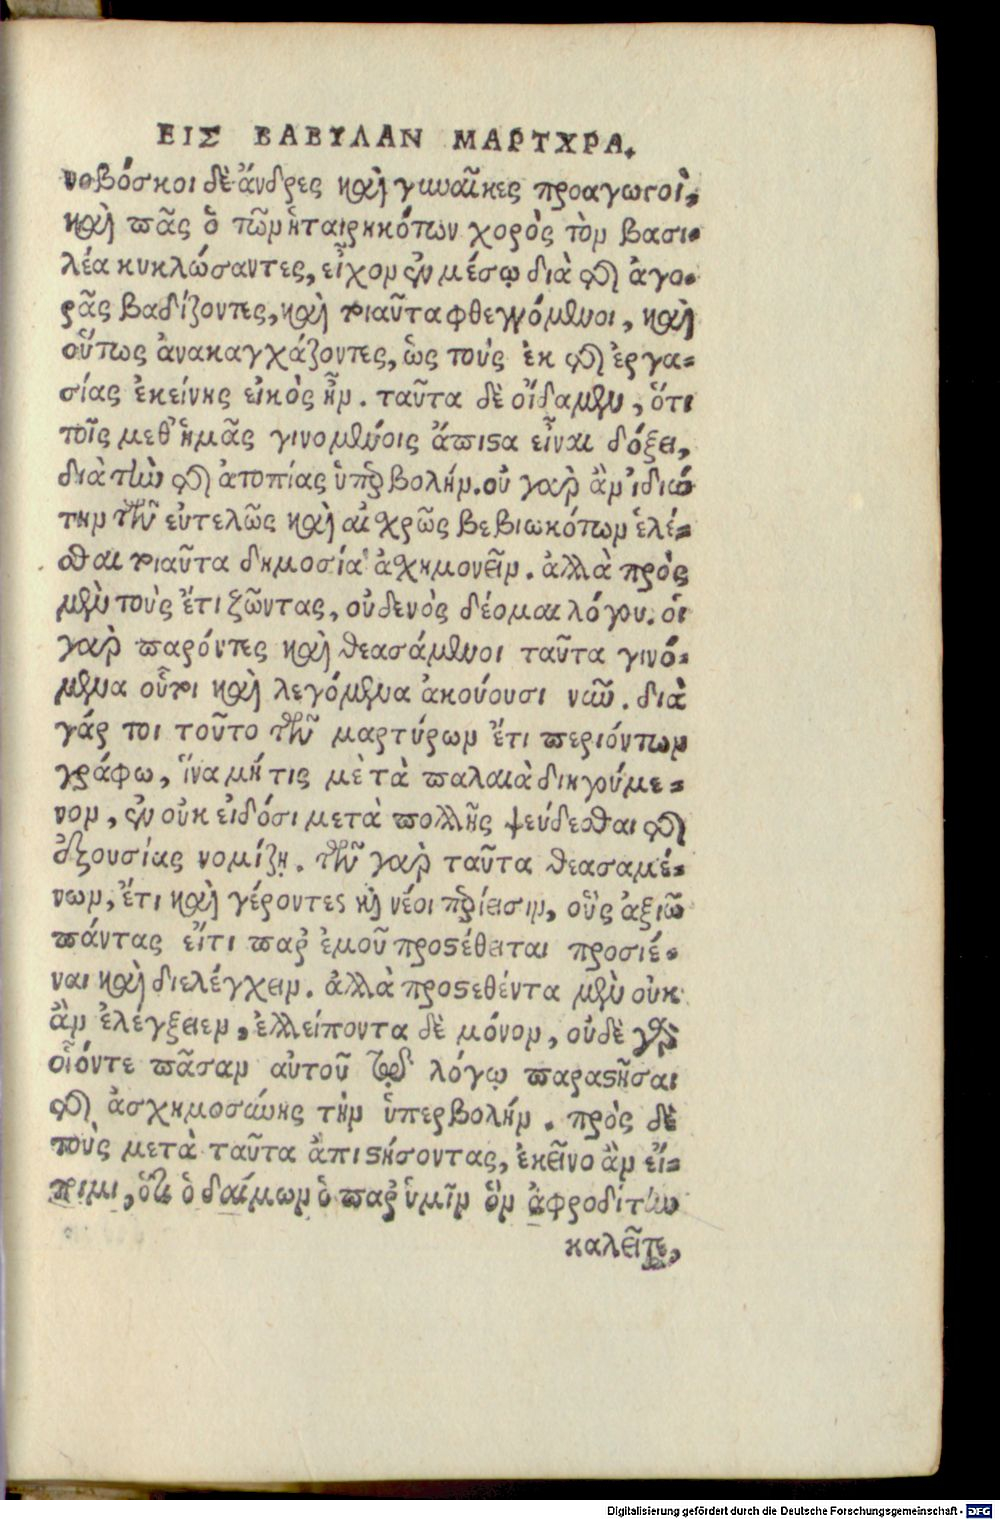 ΕΙΣ ΒΑΒΥΛΑΝ ΜΑΡΤΥΡΑ.
νοβόσκοι δὲ ἄνδρες καὶ γυναῖκες προαγωγοὶ,
καὶ πᾶς ὁ τῶν ἡταιρηκότων χορὸς τὸν βασι-
λέα κυκλώσαντες, εἶχον ἐν μέσῳ διὰ τῆς ἀγο-
ρᾶς βαδίζοντες, καὶ τοιαῦτα φθεγγόμενοι, καὶ
οὕτως ἀνακαγχάζοντες, ὡς τοὺς ἐκ τῆς ἐργα-
σίας ἐκείνης εἰκὸς ἦν. ταῦτα δὲ οἴδαμεν, ὅτι
τοῖς μεθ᾽ ἡμᾶς γινομένοις ἄπιστα εἶναι δόξει,
διὰ τὴν τῆς ἀτοπίας ὑπερβολήν. οὐ γὰρ ἂν ἰδιώ
την τῶν εὐτελῶς καὶ αἰσχρῶς βεβιωκότων ἑλέ-
σθαι τοιαῦτα δημοσίᾳ ἀσχημονεῖν. ἀλλὰ πρὸς
μὲν τοὺς ἔτι ζῶντας, οὐδενὸς δέομαι λόγου. οἱ
γὰρ παρόντες καὶ θεασάμενοι ταῦτα γινό-
μενα οὗτοι καὶ λεγόμενα ἀκούουσι νῦν. διὰ
γάρ τοι τοῦτο τῶν μαρτύρων ἔτι περιόντων
γράφω, ἵνα μή τις μὲ τὰ παλαιὰ διηγούμε-
νον, ἐν οὐκ εἰδόσι μετὰ πολλῆς ψεύδεσθαι τῆς
ἐξουσίας νομίζῃ. τῶν γὰρ ταῦτα θεασαμέ-
νων, ἔτι καὶ γέροντες καὶ νέοι περίεισιν, οὓς ἀξιῶ
πάντας εἴ τι παρ᾽ ἐμοῦ προστέθειται προσιέ-
ναι καὶ διελέγχειν. ἀλλὰ προστεθέντα μὲν οὐκ
ἂν ἐλέγξειεν, ἐλλείποντα δὲ μόνον, οὐδὲ γὰρ
οἷόντε πᾶσαν αὐτοῦ τῷ λόγῳ παραστῆσαι
τῆς ἀσχημοσύνης τὴν ὑπερβολήν. πρὸς δὲ
τοὺς μετὰ ταῦτα ἀπιστήσοντας, ἐκεῖνο ἂν εἴ-
ποιμι, ὅτι ὁ δαίμων ὁ παρ᾽ ὑμῖν ὃν ἀφροδίτην
καλεῖτε,
Digitalisierung gefördert durch die Deutsche Forschungsgemeinschaft - DFG